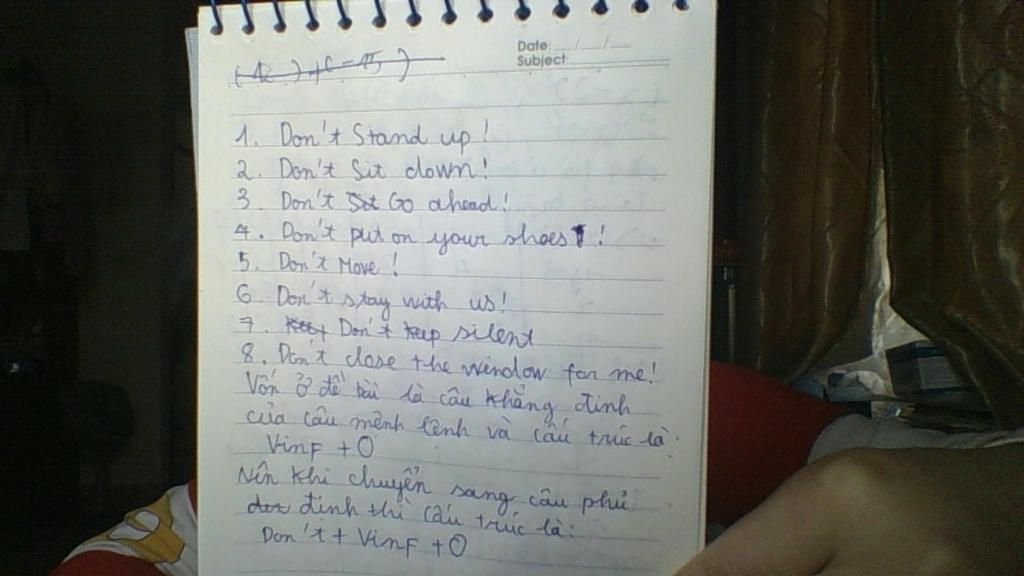 Date: __/__/__
Subject:
1. Don't Stand up!
2. Don't Sit down!
3. Don't Go ahead!
4. Don't put on your shoes!
5. Don't Move!
6. Don't stay with us!
7. Don't keep silent
8. Don't close the window for me!
Vốn ở đề bài là câu khẳng định
của câu mệnh lệnh và cấu trúc là:
Vinf + O
Nên khi chuyển sang câu phủ
định thì cấu trúc là:
Don't + Vinf + O